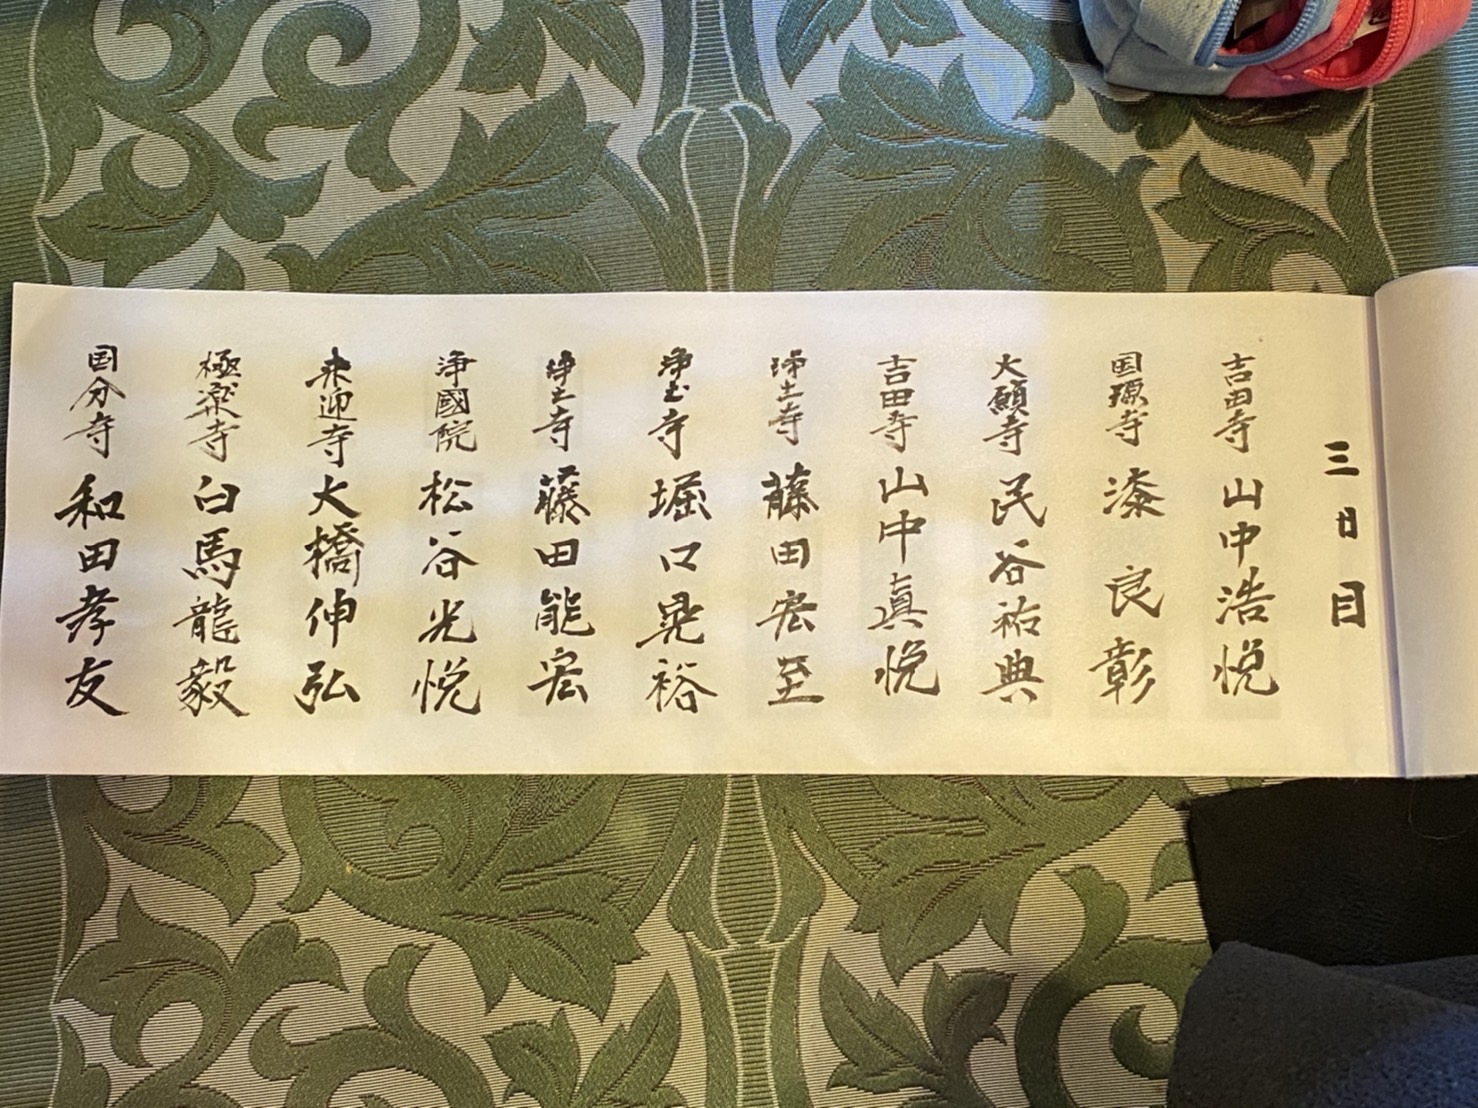 三日目
吉田寺 山中浩悦
国源寺 漆 良彰
大願寺 民谷祐典
吉田寺 山中真悦
浄土寺 藤田宏至
浄土寺 堀口晃裕
浄土寺 藤田能宏
浄國院 松谷光悦
来迎寺 大橋伸弘
極楽寺 白馬龍毅
国分寺 和田孝友